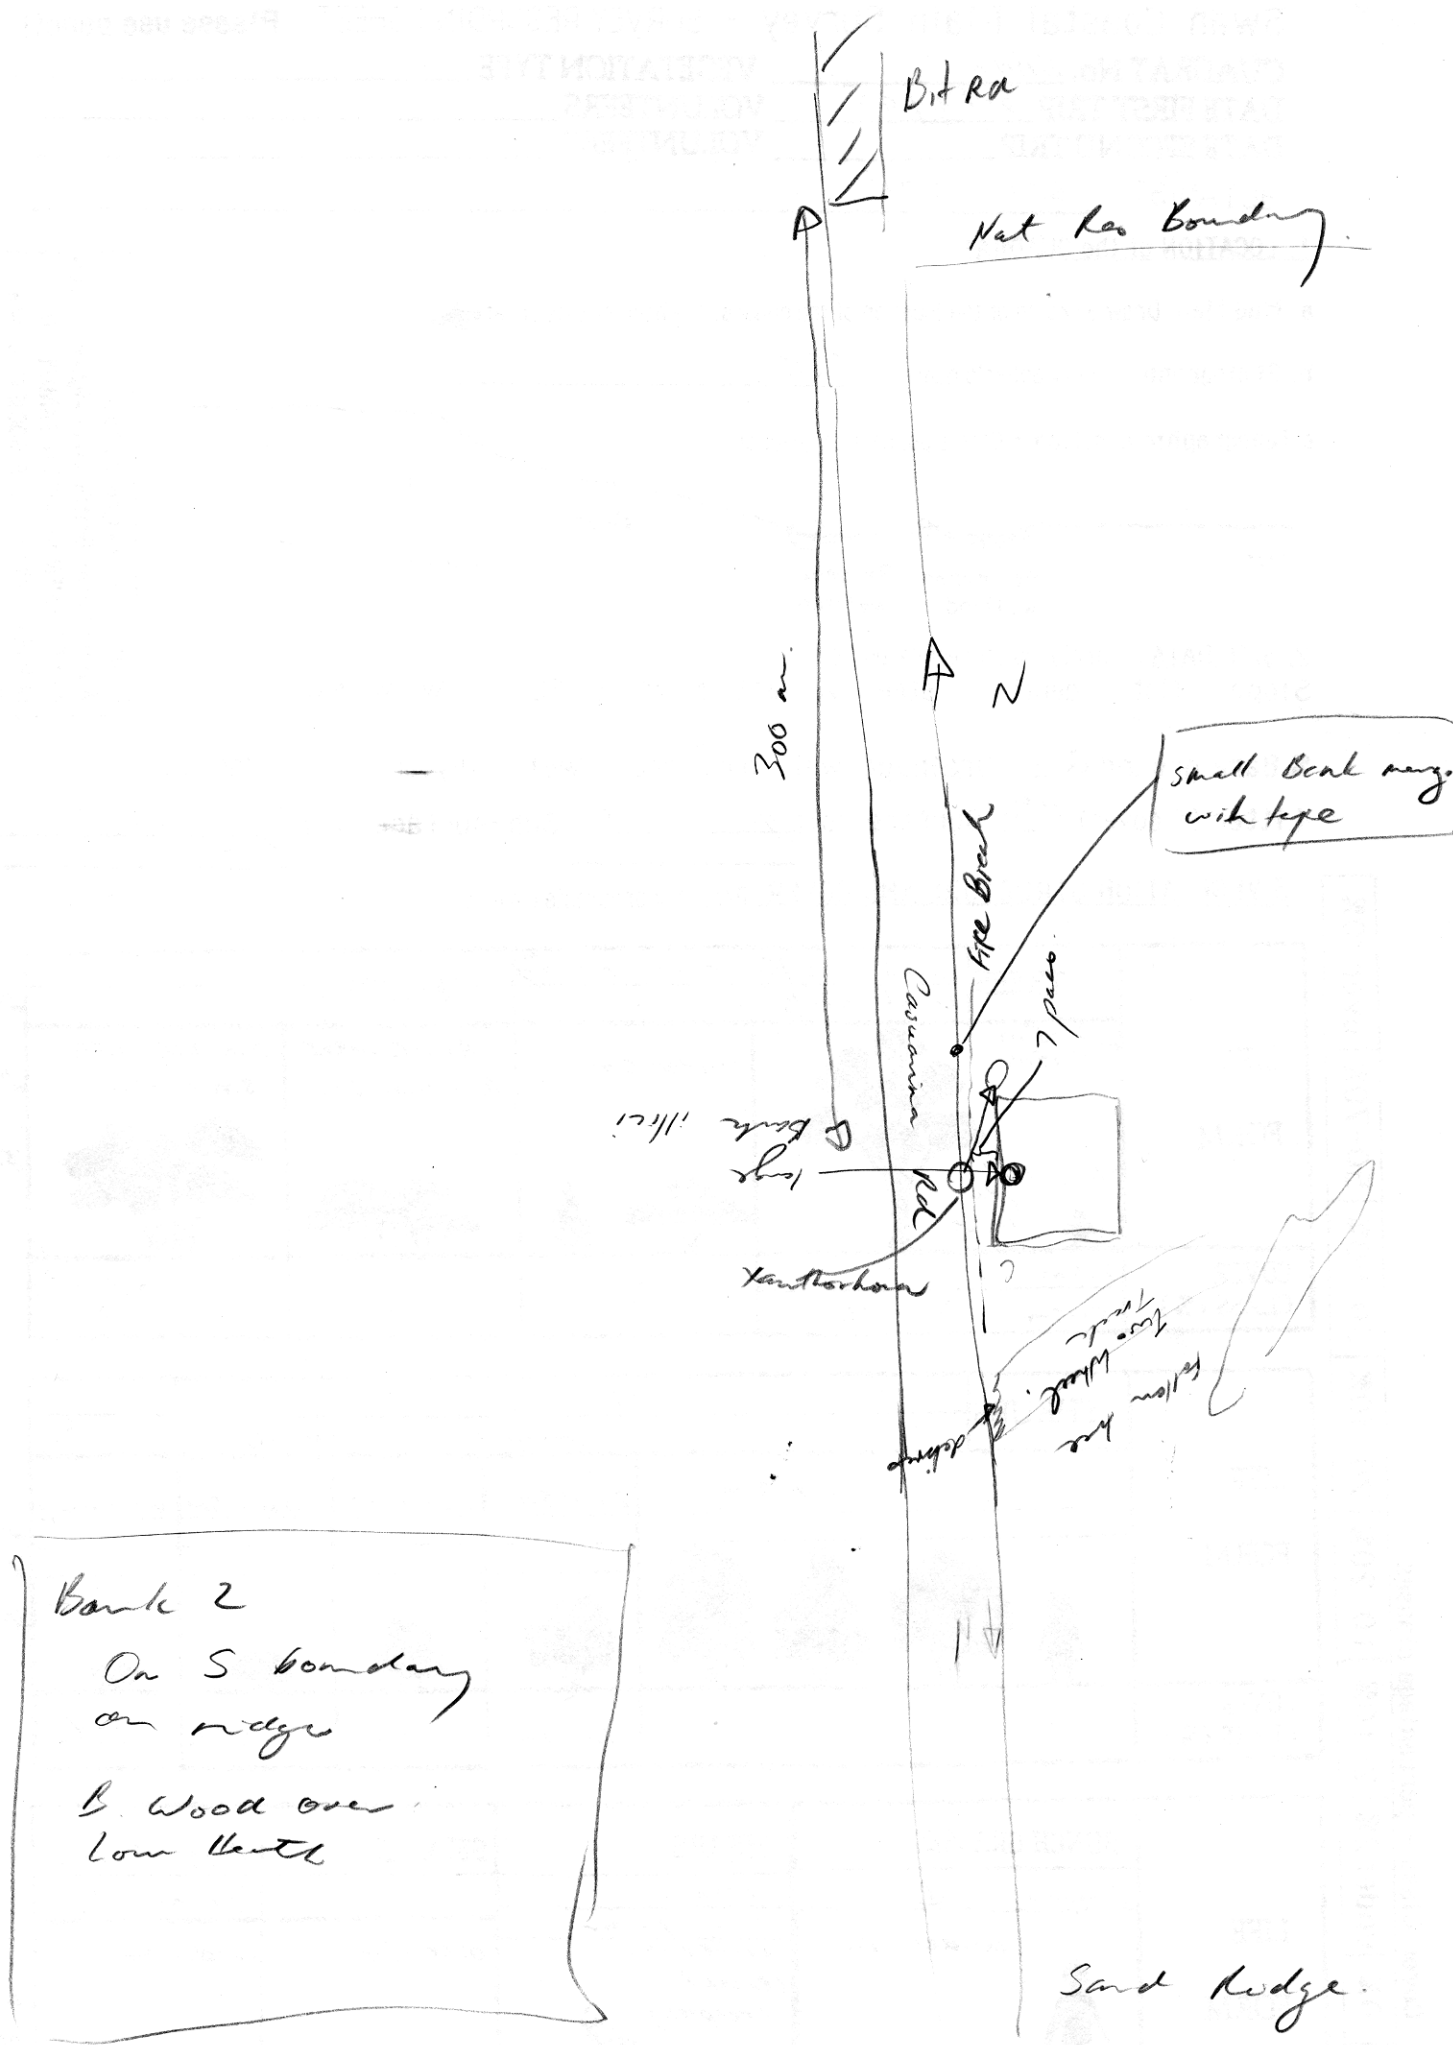 Bit Rd
Nat Res Boundary.
300 m.
N
small Bank menz.
with tape
Fire Break
7 paces.
Casuarina Rd
large
Bank illici
Xanthorhoea
Two Wheel.
Track
Follow here
debris
Bank 2
On S boundary
on ridge
B. Wood over
Low Heath
Sand Ridge.